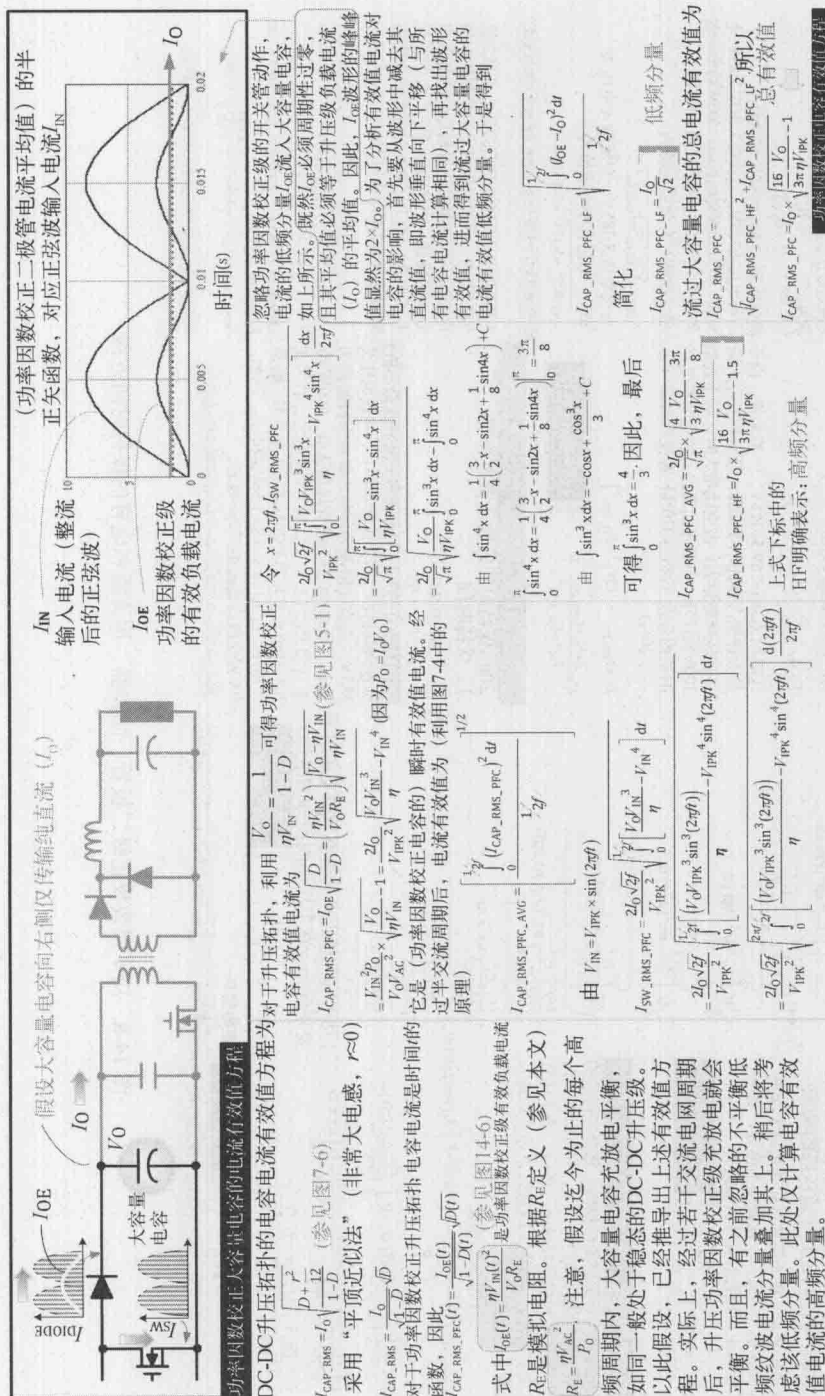 假设大容量电容向右侧仅传输纯直流（I_O）
I_OE
I_DIODE
I_SW
大容量
电容
V_O
I_O
I_IN
输入电流（整流
后的正弦波）
I_OE
功率因数校正级
的有效负载电流
（功率因数校正二极管电流平均值）的半
正矢函数，对应正弦波输入电流I_IN
I_O
10
5
0
0
0.005
0.01
0.015
0.02
时间(s)
功率因数校正大容量电容的电流有效值方程
DC-DC升压拓扑的电容电流有效值方程为
I_CAP_RMS=I_O√((D+r²/12)/(1-D)) (参见图7-6)
采用“平顶近似法”（非常大电感，r≈0）
I_CAP_RMS=I_O/√(1-D) √D
对于功率因数校正升压拓扑，电容电流是时间t的
函数，因此
I_CAP_RMS_PFC(t)=I_OE(t)/√(1-D(t)) √D(t)
式中I_OE(t)=ηV_IN(t)²/V_O R_E (参见图14-6) 是功率因数校正级有效负载电流
R_E是模拟电阻。根据R_E定义（参见本文）
R_E=ηV_AC²/P_O，注意，假设迄今为止的每个高
频周期内，大容量电容充放电平衡，
如同一般处于稳态的DC-DC升压级。
以此假设，已经推导出上述有效值方
程。实际上，经过若干交流电网周期
后，升压功率因数校正级充放电就会
平衡。而且，有之前忽略的不平衡低
频纹波电流分量叠加其上。稍后将考
虑该低频分量。此处仅计算电容有效
值电流的高频分量。
对于升压拓扑，利用 V_O/ηV_IN=1/(1-D) 可得功率因数校正
电容有效值电流为
I_CAP_RMS_PFC=I_OE√(D/(1-D))=(ηV_IN²/V_O R_E)√((V_O-ηV_IN)/ηV_IN) (参见图5-1)
=V_IN²P_O/V_O V_AC² × √(V_O/ηV_IN -1)=2I_O/V_IPK² √(V_O V_IN³/η -V_IN⁴) (因为P_O=I_O V_O)
它是（功率因数校正电容的）瞬时有效值电流。经
过半交流周期后，电流有效值为（利用图7-4中的
原理）
I_CAP_RMS_PFC_AVG=[∫₀^(1/2f)(I_CAP_RMS_PFC)²dt / (1/2f)]^1/2
由 V_IN=V_IPK×sin(2πft)
I_SW_RMS_PFC=2I_O√2f/V_IPK² √(∫₀^(1/2f)[V_O V_IN³/η -V_IN⁴]dt)
=2I_O√2f/V_IPK² √(∫₀^(1/2f)[(V_O V_IPK³sin³(2πft))/η -V_IPK⁴sin⁴(2πft)]dt)
=2I_O√2f/V_IPK² √(∫₀^(2πf/2f)[(V_O V_IPK³sin³(2πft))/η -V_IPK⁴sin⁴(2πft)] d(2πft)/2πf)
令 x=2πft, I_SW_RMS_PFC
=2I_O√2f/V_IPK² √(∫₀^π[V_O V_IPK³sin³x/η -V_IPK⁴sin⁴x] dx/2πf)
=2I_O/√π √(∫₀^π[V_O/ηV_IPK sin³x-sin⁴x]dx)
=2I_O/√π √(V_O/ηV_IPK ∫₀^π sin³x dx-∫₀^π sin⁴x dx)
由 ∫sin⁴x dx=1/4(3/2 x-sin2x+1/8 sin4x)+C
∫₀^π sin⁴x dx=1/4(3/2 x-sin2x+1/8 sin4x)|₀^π=3π/8
由 ∫sin³xdx=-cosx+cos³x/3+C
可得∫₀^π sin³x dx=4/3。因此，最后
I_CAP_RMS_PFC_AVG=2I_O/√π×√(4/3 V_O/ηV_IPK -3π/8)
I_CAP_RMS_PFC_HF=I_O×√(16/3π V_O/ηV_IPK -1.5)
上式下标中的
HF明确表示：高频分量
忽略功率因数校正级的开关管动作，
电流的低频分量I_OE流入大容量电容，
如上所示。既然I_OE必须周期性过零，
且其平均值必须等于升压级负载电流
（I_O）的平均值。因此，I_OE波形的峰峰
值显然为2×I_O。为了分析有效值电流对
电容的影响，首先要从波形中减去其
直流值，即波形垂直向下平移（与所
有电容电流计算相同），再找出波形
有效值，进而得到流过大容量电容的
电流有效值低频分量。于是得到
I_CAP_RMS_PFC_LF=√(∫₀^(1/2f)(I_OE-I_O)²dt / (1/2f))
简化
I_CAP_RMS_PFC_LF=I_O/√2 低频分量
流过大容量电容的总电流有效值为
I_CAP_RMS_PFC=
√(I_CAP_RMS_PFC_HF²+I_CAP_RMS_PFC_LF²) 所以
总有效值
I_CAP_RMS_PFC=I_O×√(16/3π V_O/ηV_IPK -1)
功率因数校正电容有效值方程